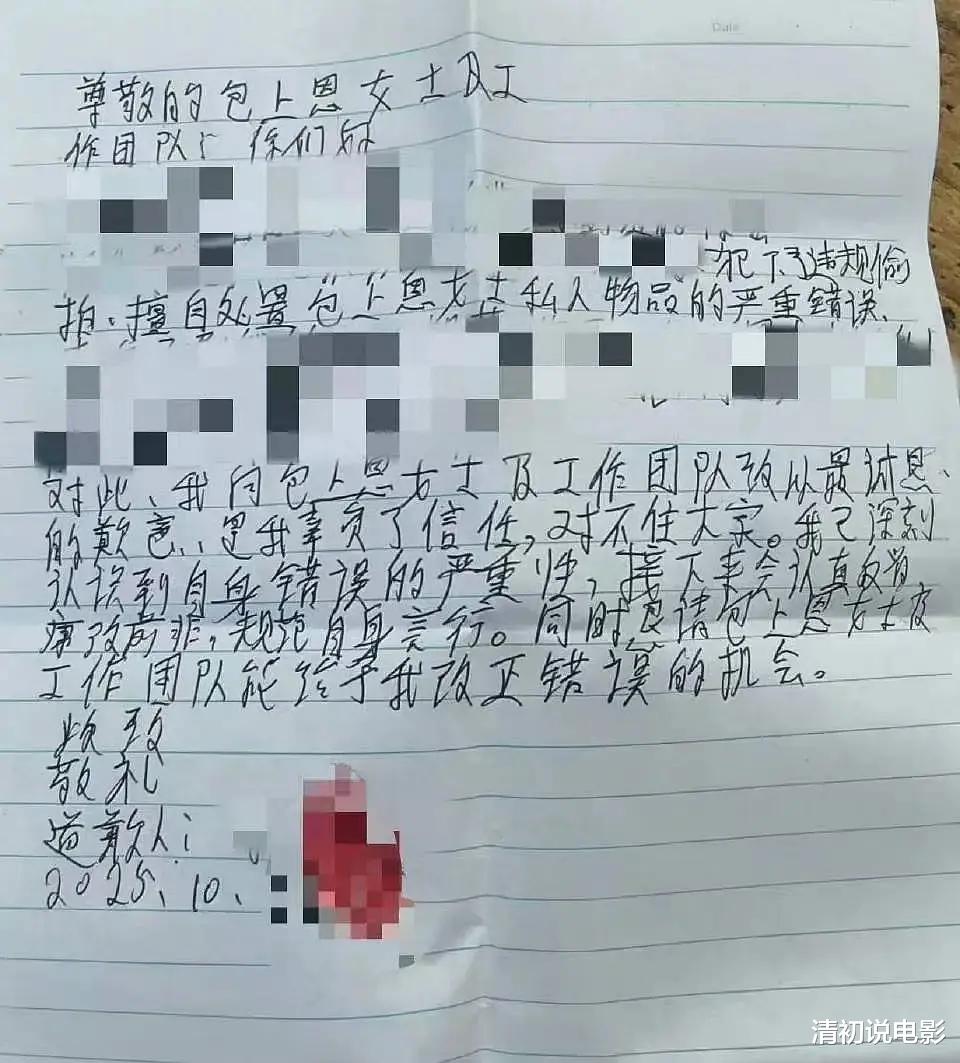 Date
尊敬的包上恩女士及工
作团队: 你们好
犯下了违规偷
拍、擅自处置包上恩女士私人物品的严重错误、
对此、我向包上恩女士及工作团队致以最诚恳、
的歉意、是我辜负了信任,对不住大家。我已深刻
认误到自身错误的严重性,接下来会认真改省,
痛改前非,规范自身言行。同时恳请包上恩女士及
工作团队能给予我改正错误的机会。
敬礼
道歉人:
2025、10、
清初说电影